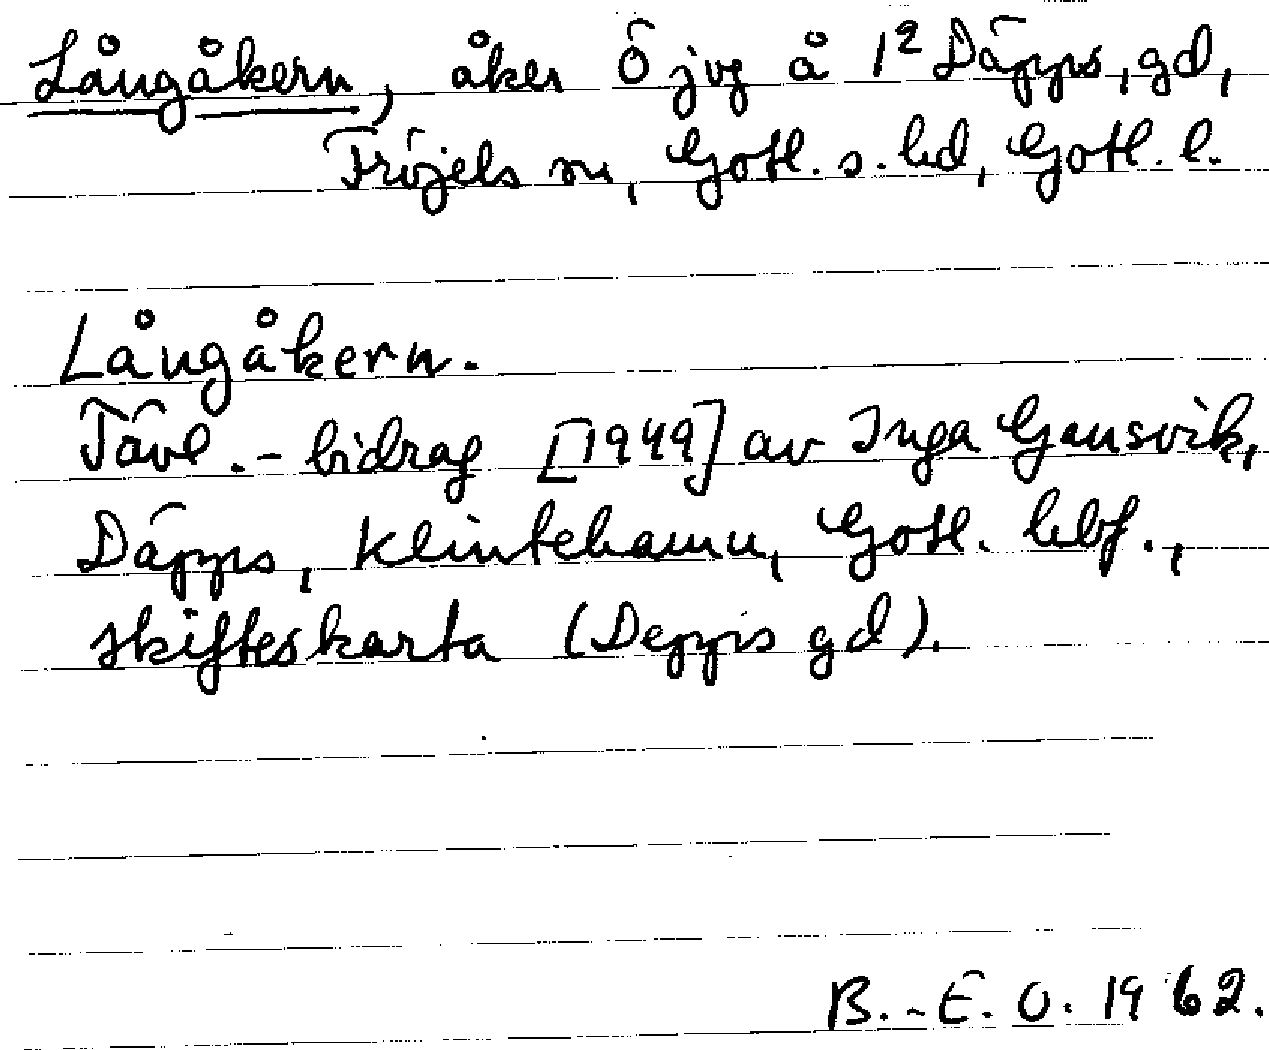 Långåkern, åker Ö jvg å 1² Däpps, gd,
Fröjels sn, Gotl. s. hd, Gotl. l.
Långåkern.
Tävl.-bidrag [1949] av Inga Gansvik,
Däpps, Klintehamn, Gotl. hbf.,
skifteskarta (Deppis gd).
B.-E. O. 1962.